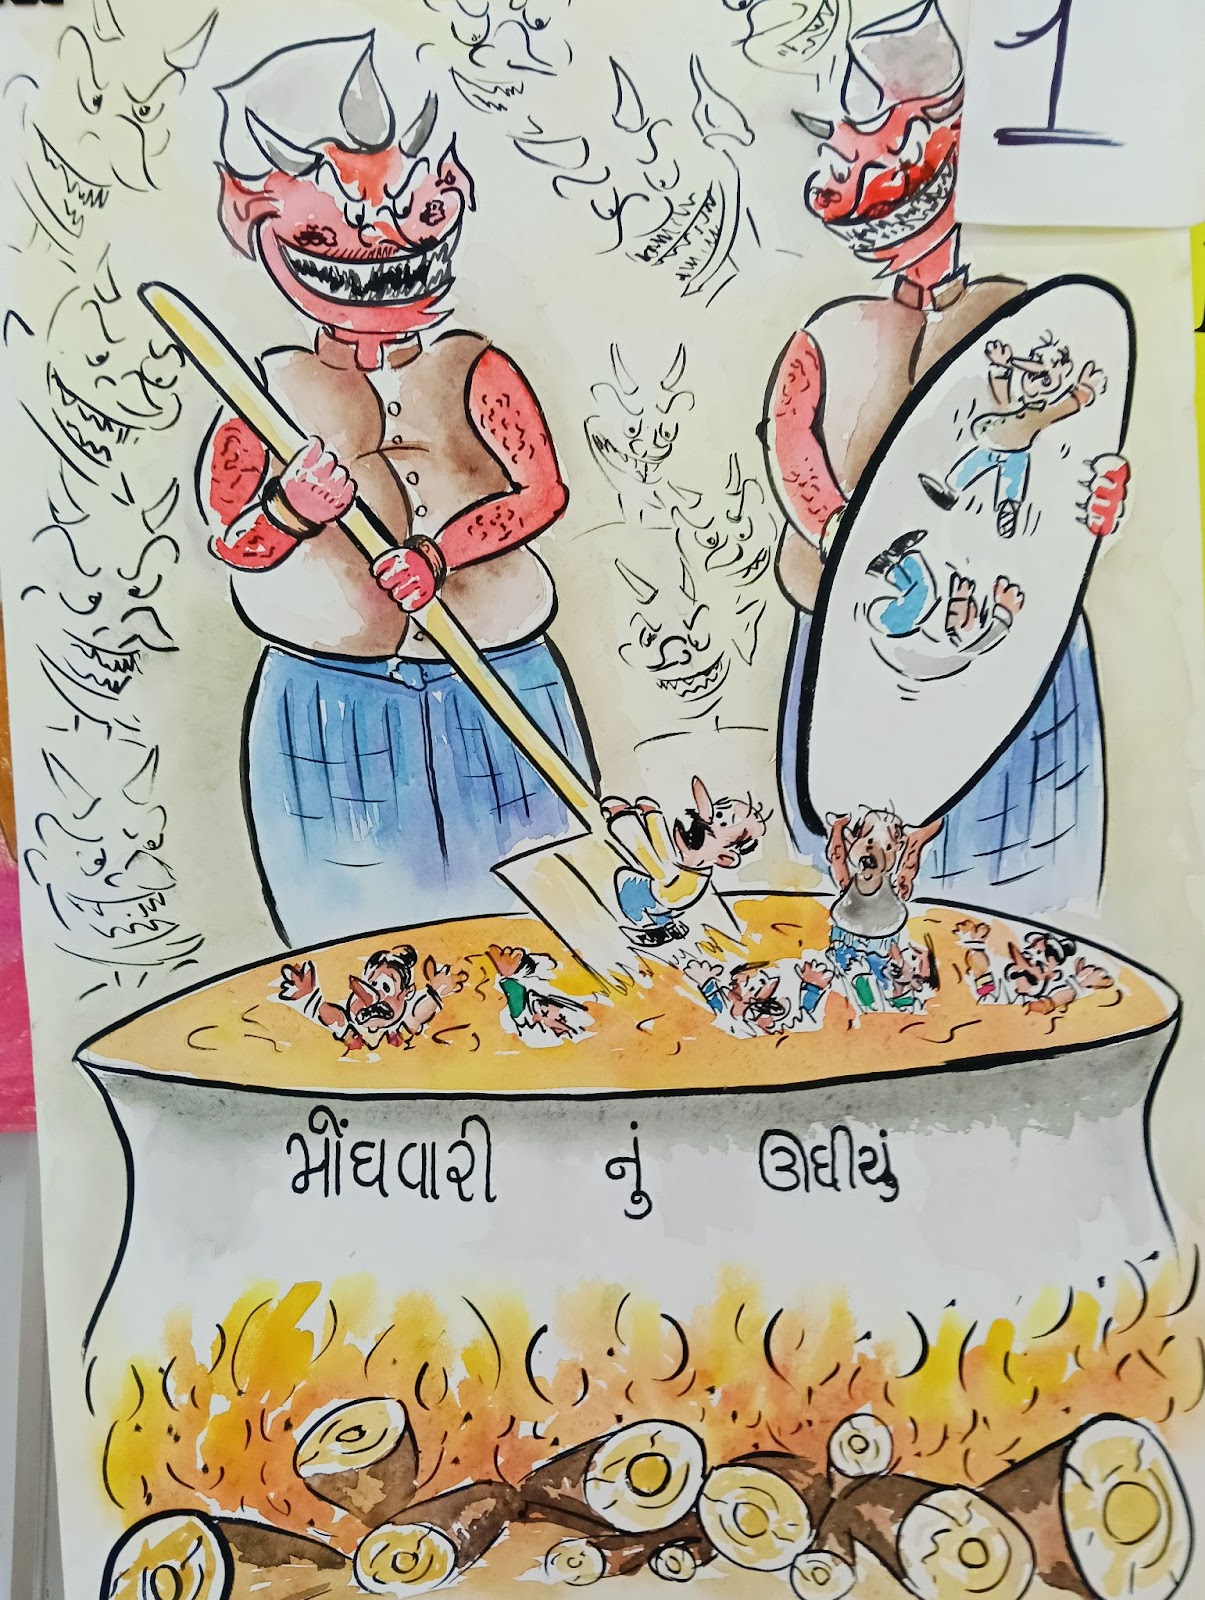 1
મોંઘવારી નું ઊંધીયું